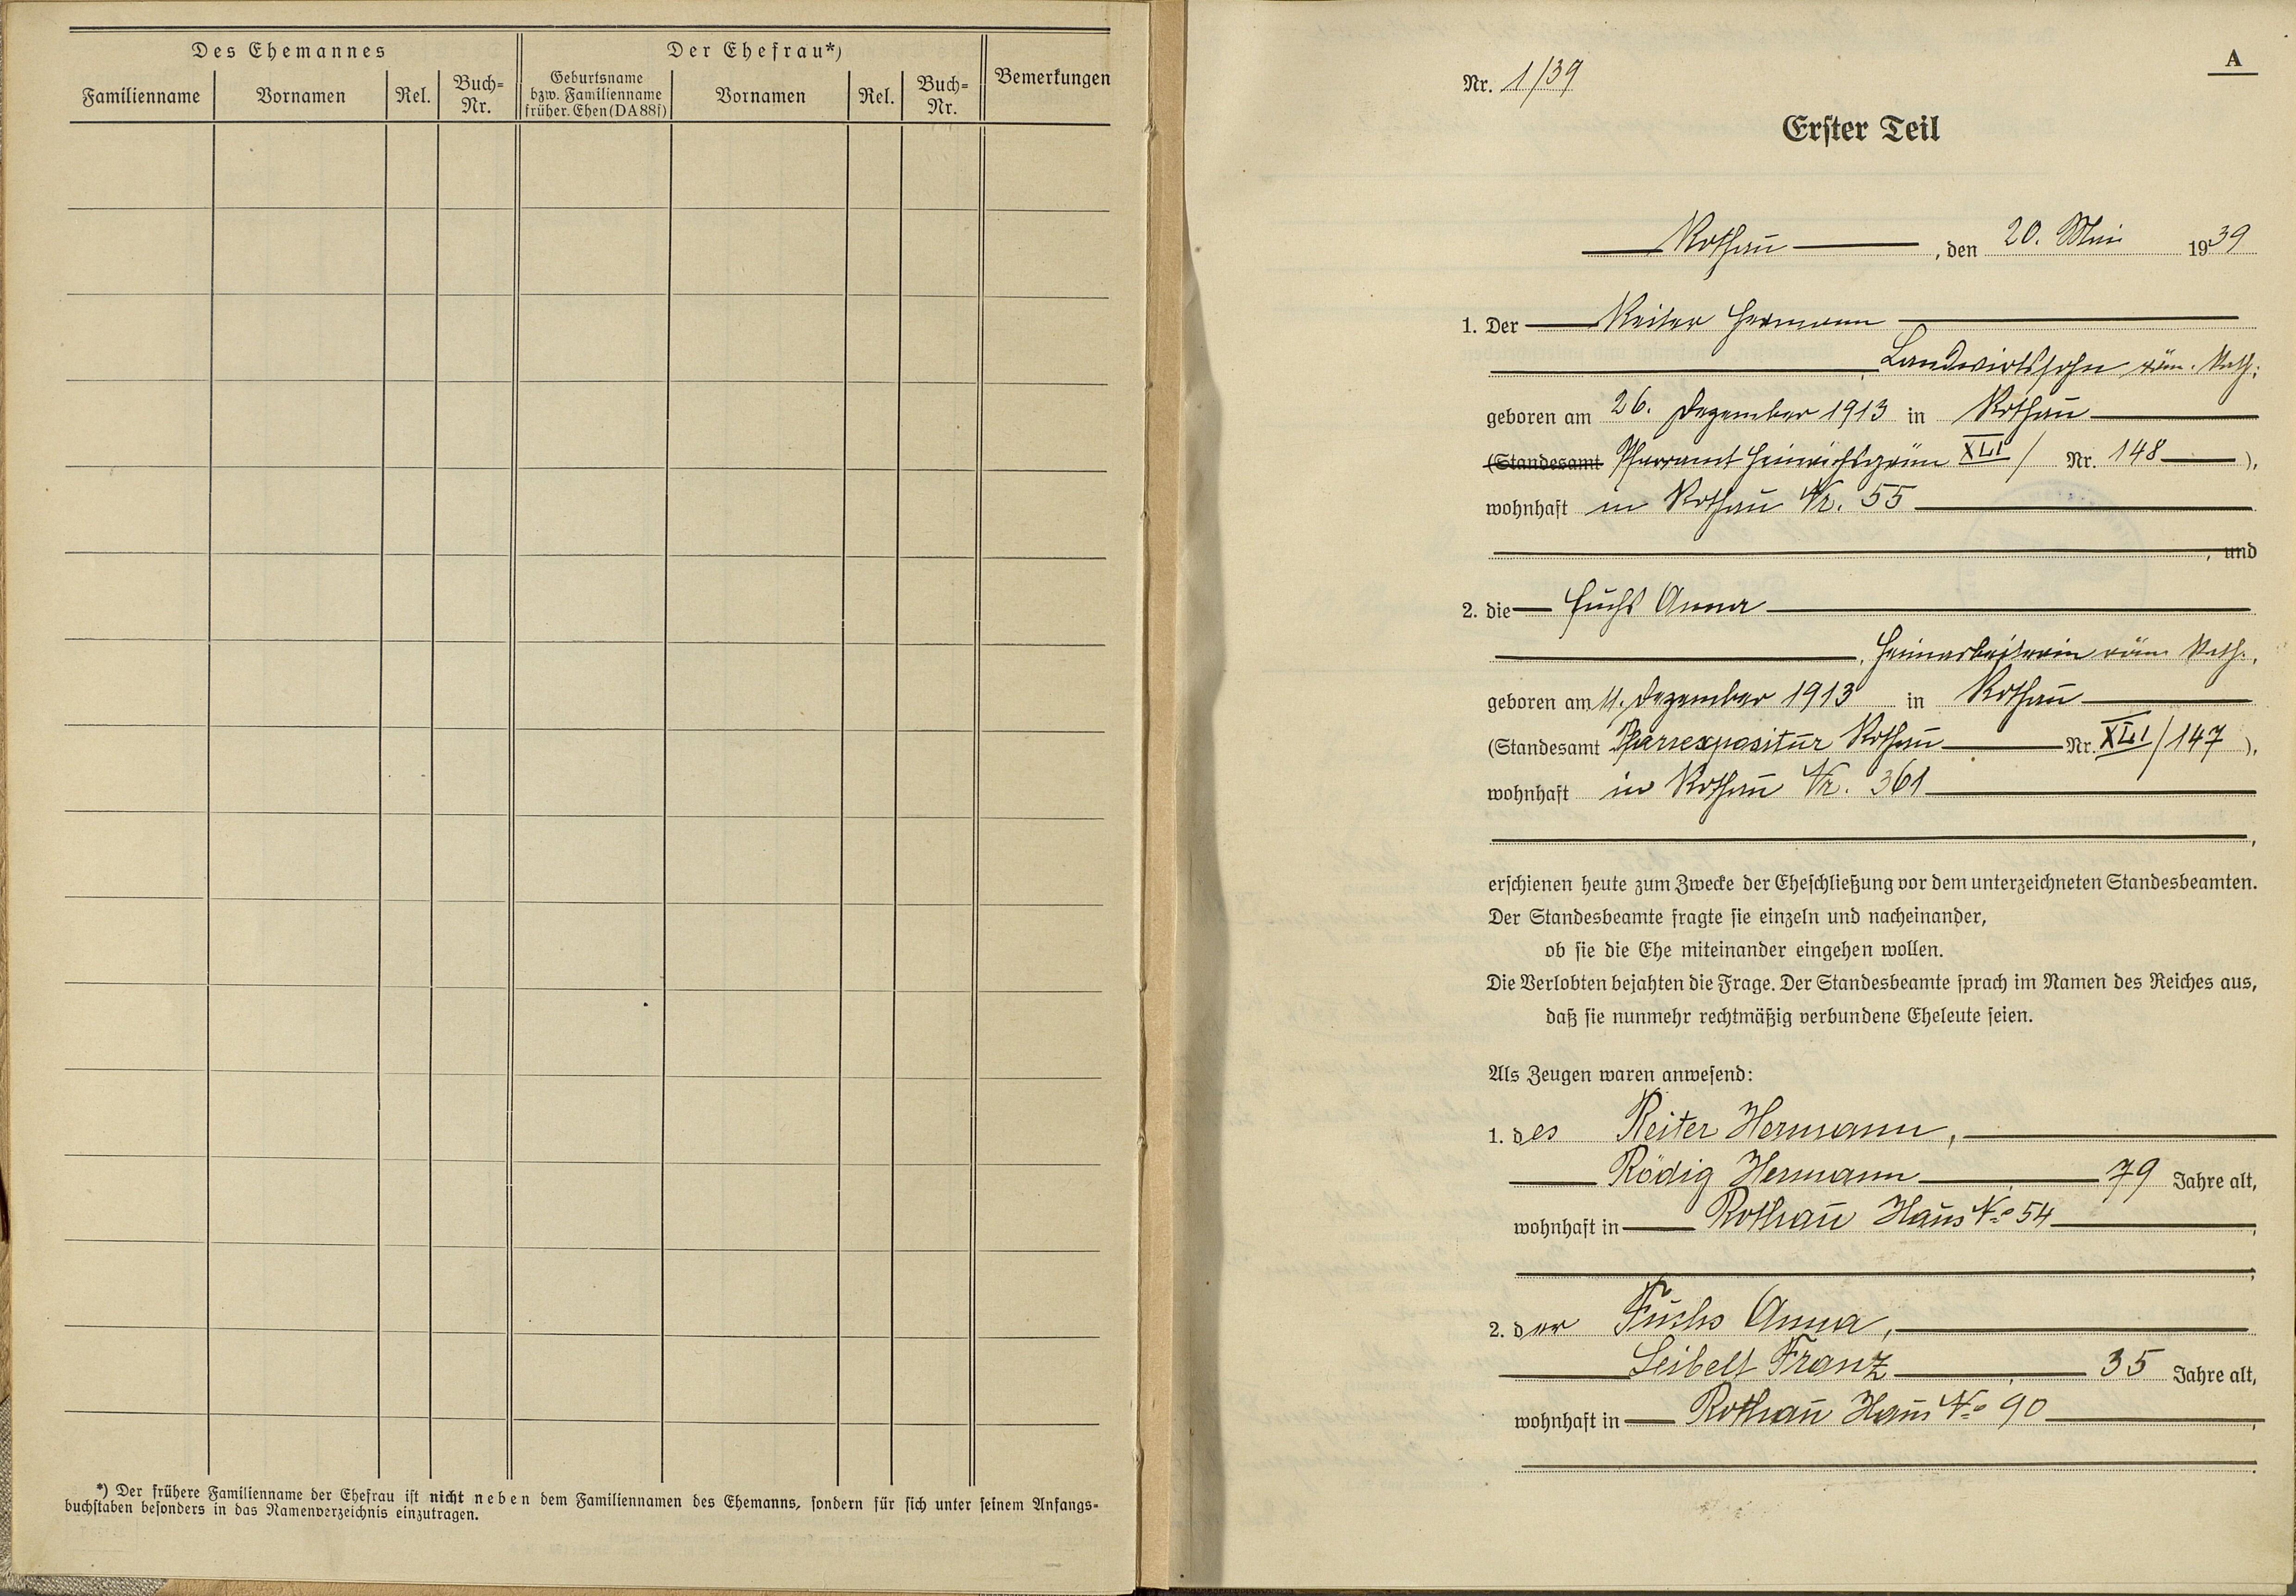 Des Ehemannes
Der Ehefrau*)
Familienname
Vornamen
Rel.
Buch-
Nr.
Geburtsname
bzw. Familienname
früher. Ehen (DA 88f)
Vornamen
Rel.
Buch-
Nr.
Bemerkungen
*) Der frühere Familienname der Ehefrau ist nicht neben dem Familiennamen des Ehemanns, sondern für sich unter seinem Anfangs-
buchstaben besonders in das Namenverzeichnis einzutragen.
A
Nr. 1/39
Erster Teil
Rothau, den 20. Mai 1939
1. Der Reiter Hermann
Landwirtssohn röm. kath.
geboren am 26. Dezember 1913 in Rothau
(Standesamt Pfarramt Heinrichsgrün XLI / Nr. 148 ),
wohnhaft in Rothau Nr. 55
, und
2. die Fuchs Anna
, Heimarbeiterin röm. kath.,
geboren am 11. Dezember 1913 in Rothau
(Standesamt Pfarrexpositur Rothau Nr. XLI/147 ),
wohnhaft in Rothau Nr. 361
,
erschienen heute zum Zwecke der Eheschließung vor dem unterzeichneten Standesbeamten.
Der Standesbeamte fragte sie einzeln und nacheinander,
ob sie die Ehe miteinander eingehen wollen.
Die Verlobten bejahten die Frage. Der Standesbeamte sprach im Namen des Reiches aus,
daß sie nunmehr rechtmäßig verbundene Eheleute seien.
Als Zeugen waren anwesend:
1. des Reiter Hermann,
Rödig Hermann, 79 Jahre alt,
wohnhaft in Rothau Haus No 54,
;
2. der Fuchs Anna,
Seibelt Franz, 35 Jahre alt,
wohnhaft in Rothau Haus No 90,
.